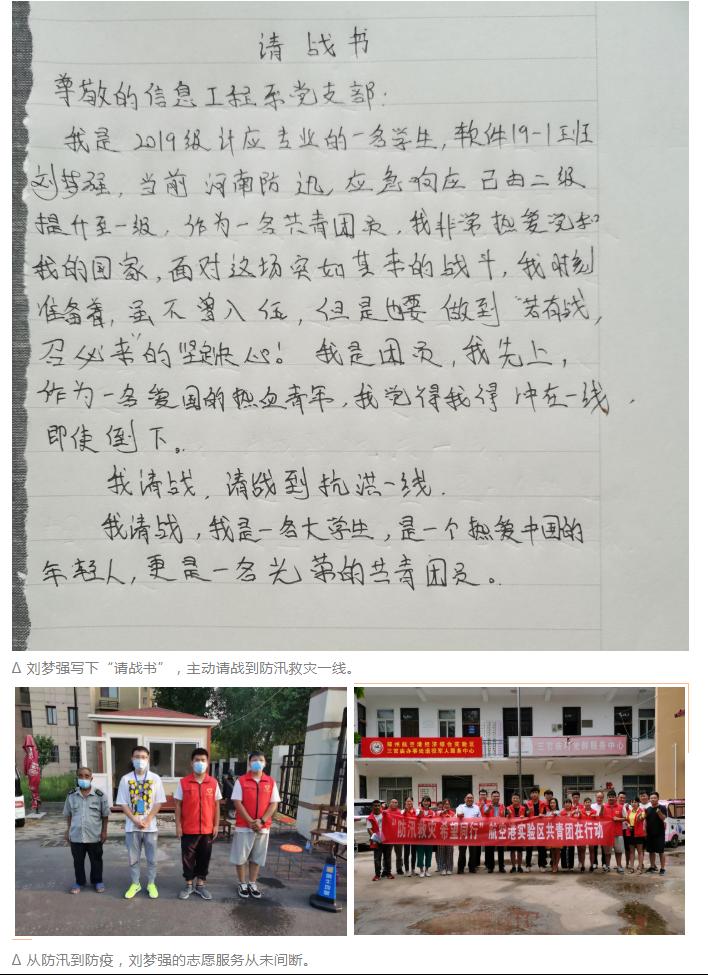 请战书
尊敬的信息工程系党支部:
我是2019级计应专业的一名学生,软件19-1班
刘梦强,当前河南防汛,应急响应已由二级
提升至一级,作为一名共青团员,我非常热爱党和
我的国家,面对这场突如其来的战斗,我时刻
准备着,虽不曾入伍,但是也要做到“若有战,
召必来”的坚定决心!我是团员,我先上,
作为一名爱国的热血青年,我觉得我得冲在一线,
即使倒下。
我请战,请战到抗洪一线.
我请战,我是一名大学生,是一个热爱中国的
年轻人,更是一名光荣的共青团员。
Δ 刘梦强写下“请战书”,主动请战到防汛救灾一线。
郑州航空港经济综合实验区
三官庙办事处退役军人服务中心
三官庙村党群服务中心
“防汛救灾 希望同行”航空港实验区共青团在行动
Δ 从防汛到防疫,刘梦强的志愿服务从未间断。